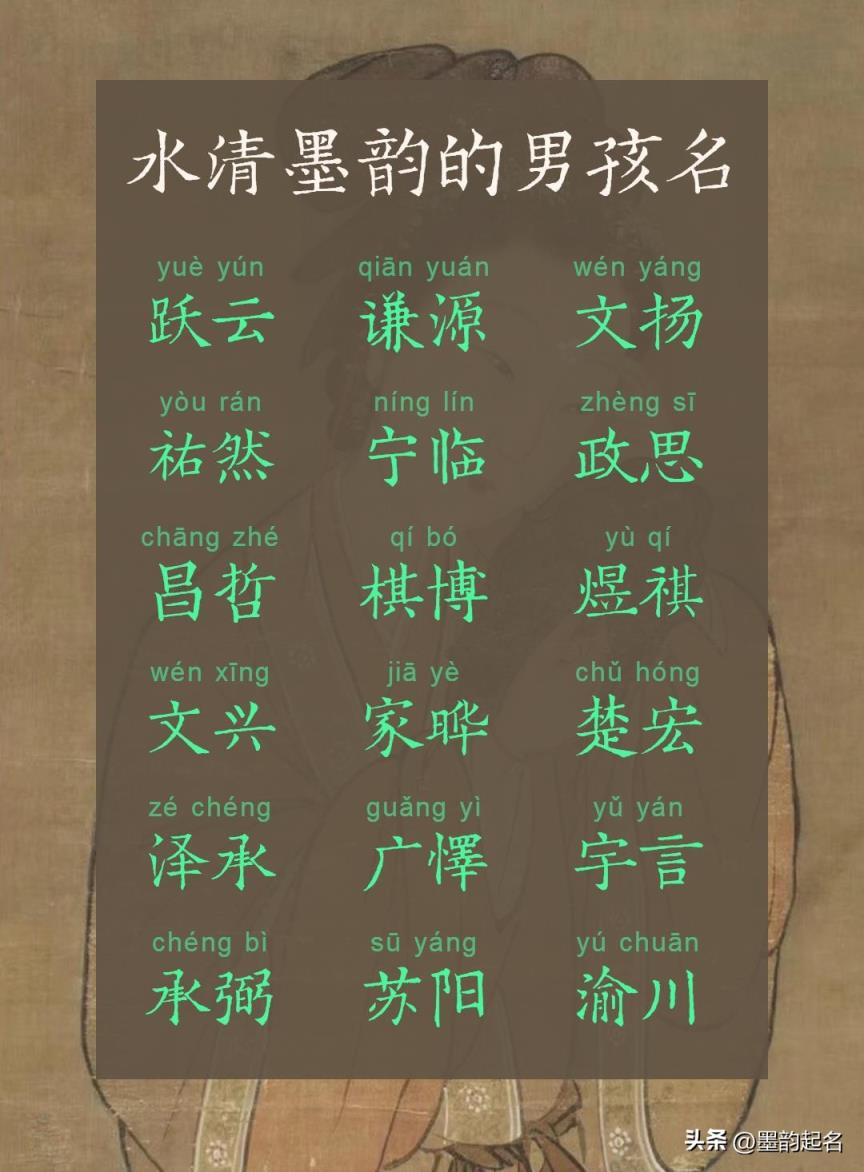 水清墨韵的男孩名
yuè yún qiān yuán wén yáng
跃云 谦源 文扬
yòu rán níng lín zhèng sī
祐然 宁临 政思
chāng zhé qí bó yù qí
昌哲 棋博 煜祺
wén xīng jiā yè chǔ hóng
文兴 家晔 楚宏
zé chéng guǎng yì yǔ yán
泽承 广怿 宇言
chéng bì sū yáng yú chuān
承弼 苏阳 渝川
头条 @墨韵起名